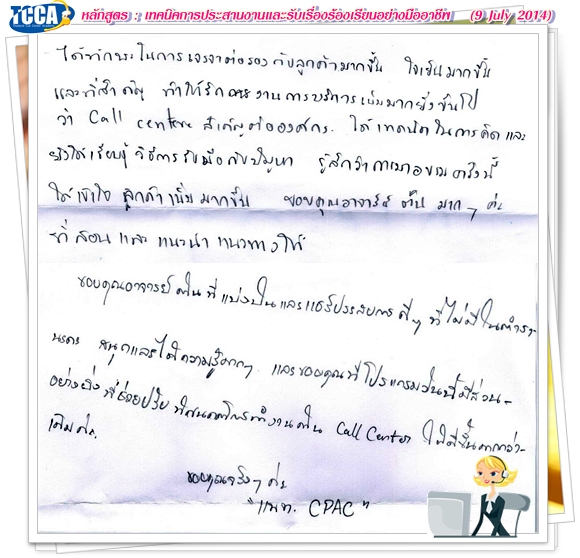 TCCA
หลักสูตร : เทคนิคการประสานงานและรับเรื่องร้องเรียนอย่างมืออาชีพ (9 July 2014)
ได้ทักษะในการเจรจาต่อรองกับลูกค้ามากขึ้น ใจเย็นมากขึ้น
และที่สำคัญ ทำให้รักงานการบริการเพิ่มมากยิ่งขึ้นไป
ว่า Call center สำคัญต่อองค์กร. ได้เทคนิคในการคิดและ
ยังได้เรียนรู้ วิธีการรับมือกับปัญหา รู้สึกว่าการมาอบรมครั้งนี้
ได้เข้าใจ ลูกค้า เพิ่มมากขึ้น ขอบคุณอาจารย์ มาก ๆ ค่ะ
ที่สอน และ แนะนำ แนวทางให้
ขอบคุณอาจารย์ ที่แบ่งปันและแชร์ประสบการณ์ดีๆ ที่ไม่มีในตำรา
สนุกและได้ความรู้มากๆ และขอบคุณที่โปรแกรมวันนี้มีส่วน-
อย่างยิ่งที่ช่วยปรับทัศนคติการทำงานใน Call Center ให้ดีขึ้นมากกว่า-
เดิมค่ะ.
ขอบคุณจริงๆ ค่ะ
" CPAC "